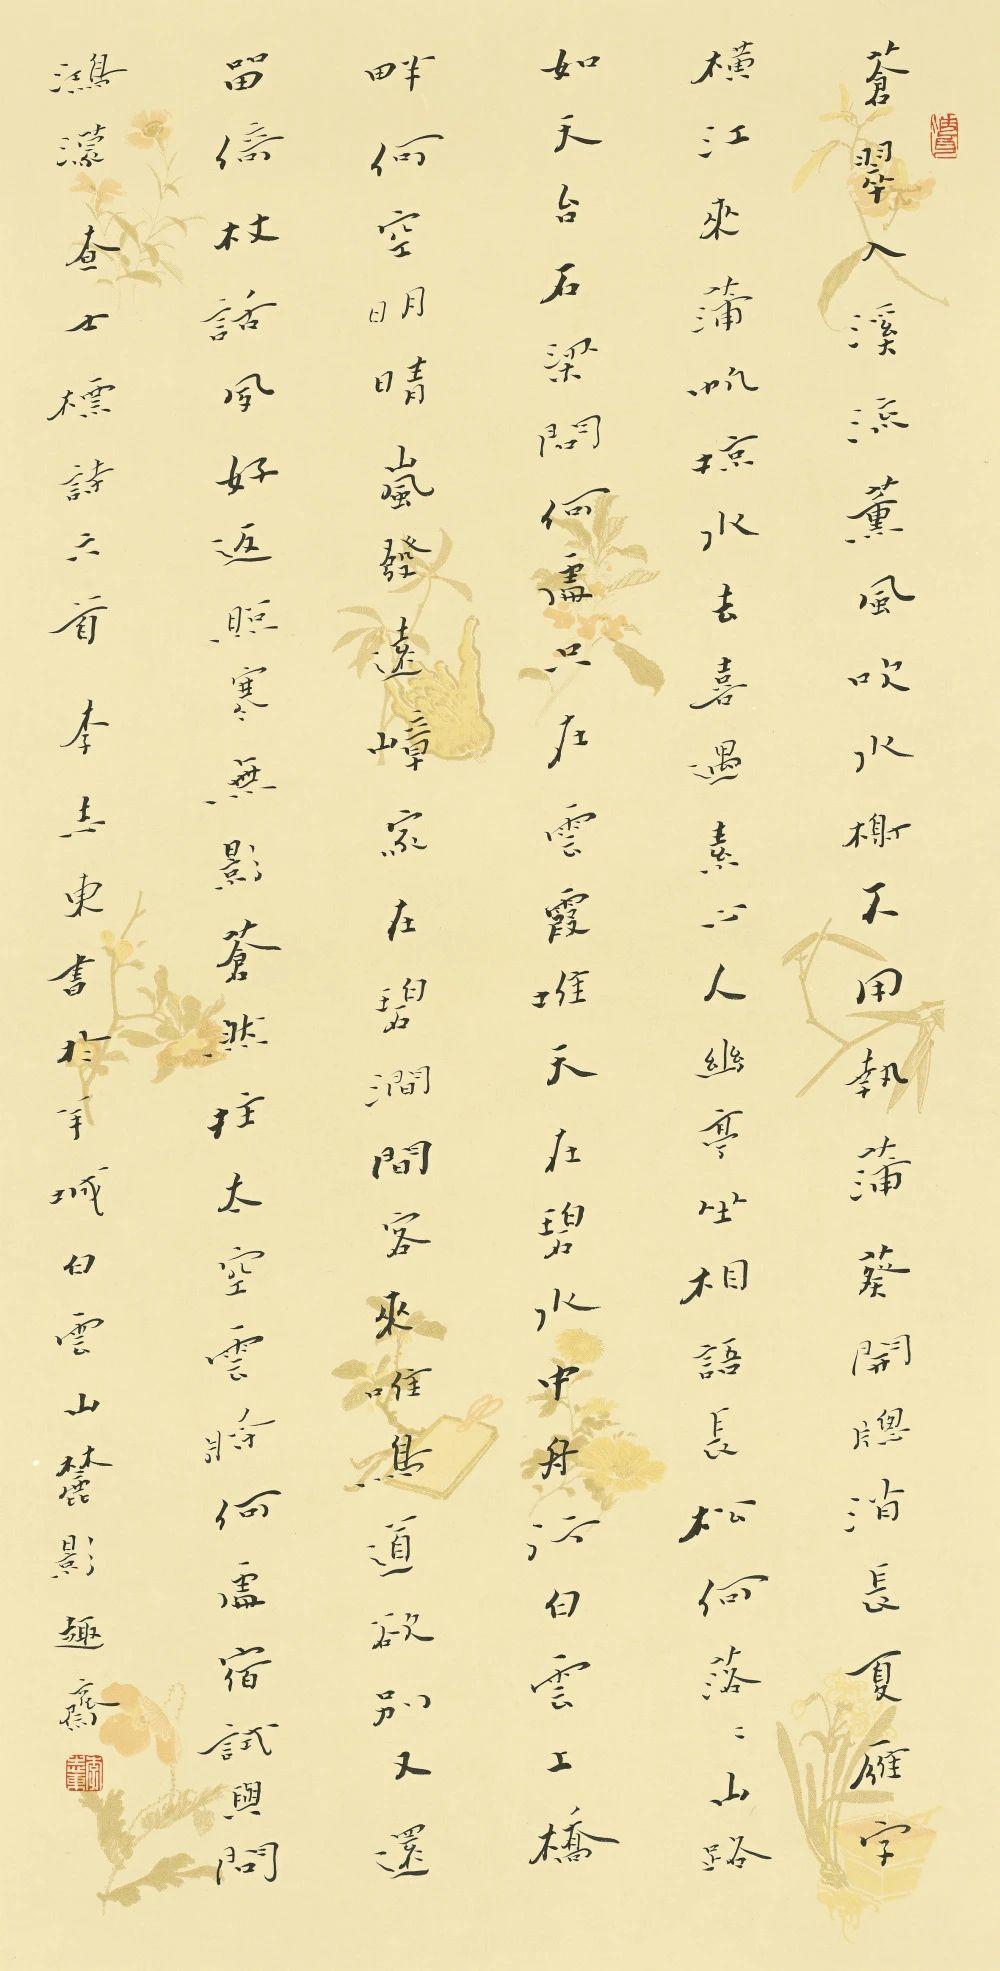 蒼翠入溪流薰風吹水榭不用執蒲葵開窻消長夏雁字
橫江來蒲帆掠水去喜遇素心人幽亭坐相語長松何落落山路
如天台石梁問何處只在雲霞堆天在碧水中舟沿白雲上橋
畔何空明晴嵐發遠嶂家在碧澗間客來唯鳥道欲別又還
留倚杖話夙好返照寒無影蒼然挂太空雲時何處宿試與問
鴻濛 查士標詩六首 李志東書於羊城白雲山麓影趣齋